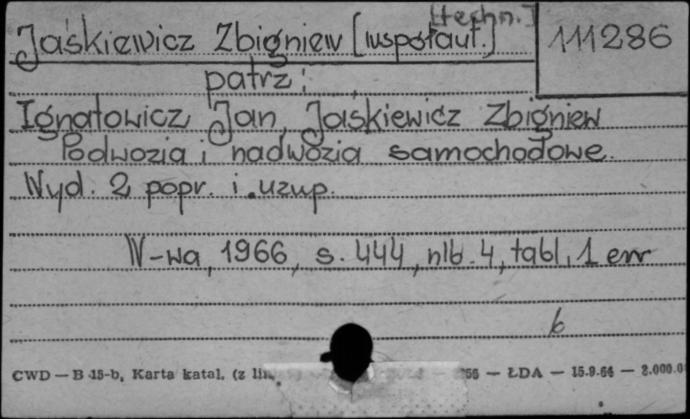 [techn.]
Jaśkiewicz Zbigniew [współaut.]
111286
patrz:
Ignatowicz Jan, Jaśkiewicz Zbigniew
Podwozia i nadwozia samochodowe.
Wyd. 2 popr. i uzup.
W-wa, 1966, s. 444, nlb. 4, tabl. 1 err
b
CWD — B 15-b, Karta katal. (z lin. 66 — ŁDA — 15.9.64 — 2.000.0